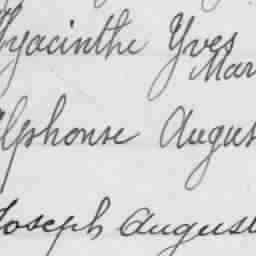 Hyacinthe Yves
Mar
Alphonse Augus
Joseph August